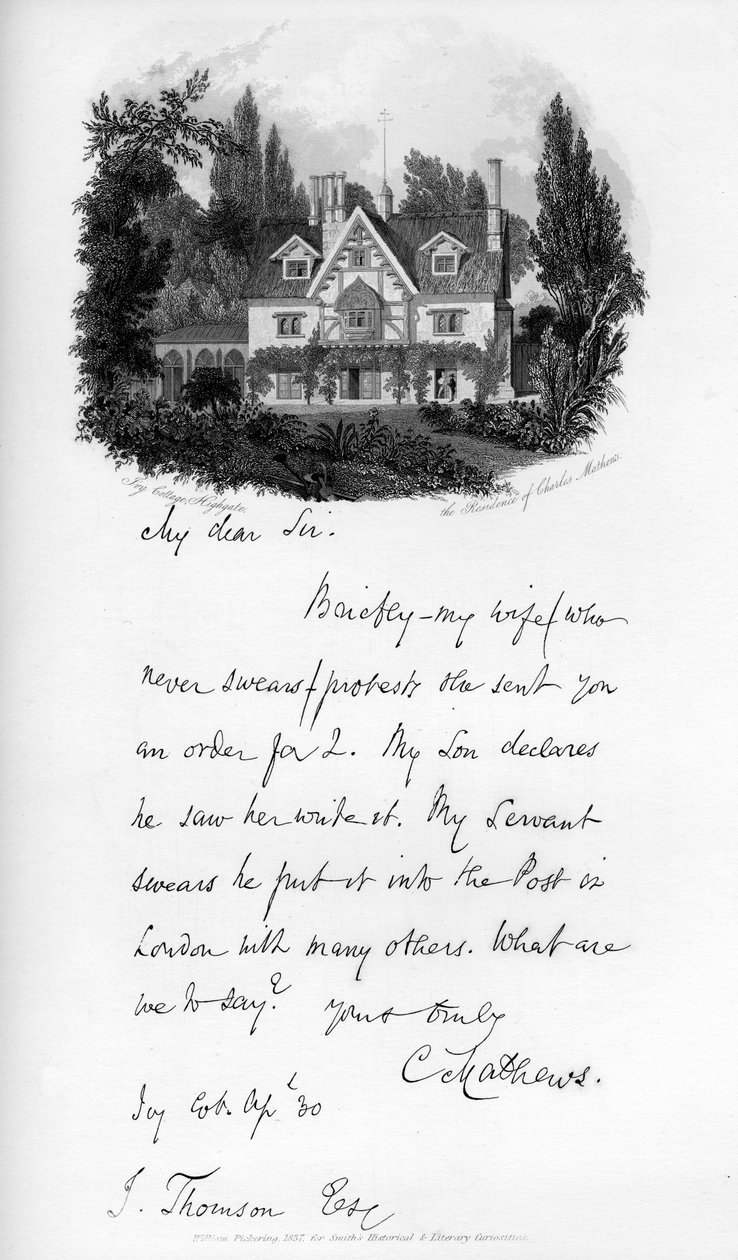 Ivy Cottage, Highgate.
the Residence of Charles Mathews.
My dear Sir.
Briefly - my wife (who
never swears) protests she sent you
an order for 2. My Son declares
he saw her write it. My Servant
swears he put it into the Post in
London with many others. What are
we to say? Yours truly
C Mathews.
Ivy Cot. Apl 30
J. Thomson Esq
William Pickering, 1837, for Smith's Historical & Literary Curiosities.